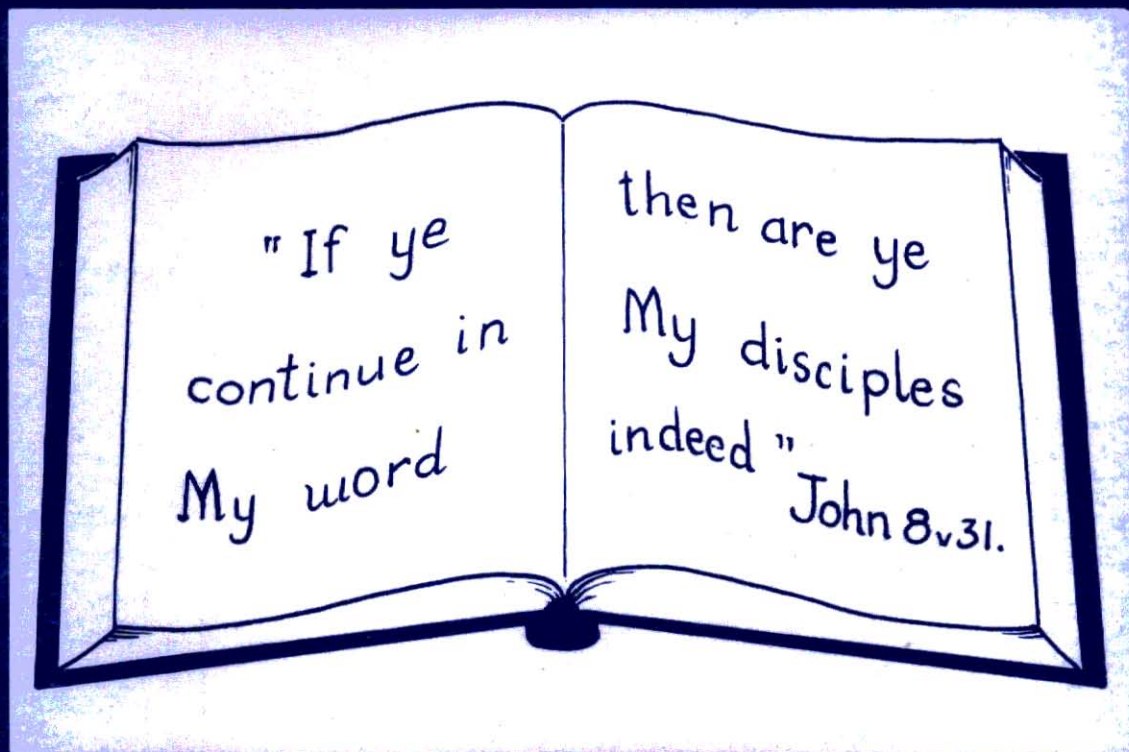 "If ye
continue in
My word
then are ye
My disciples
indeed"
John 8v31.